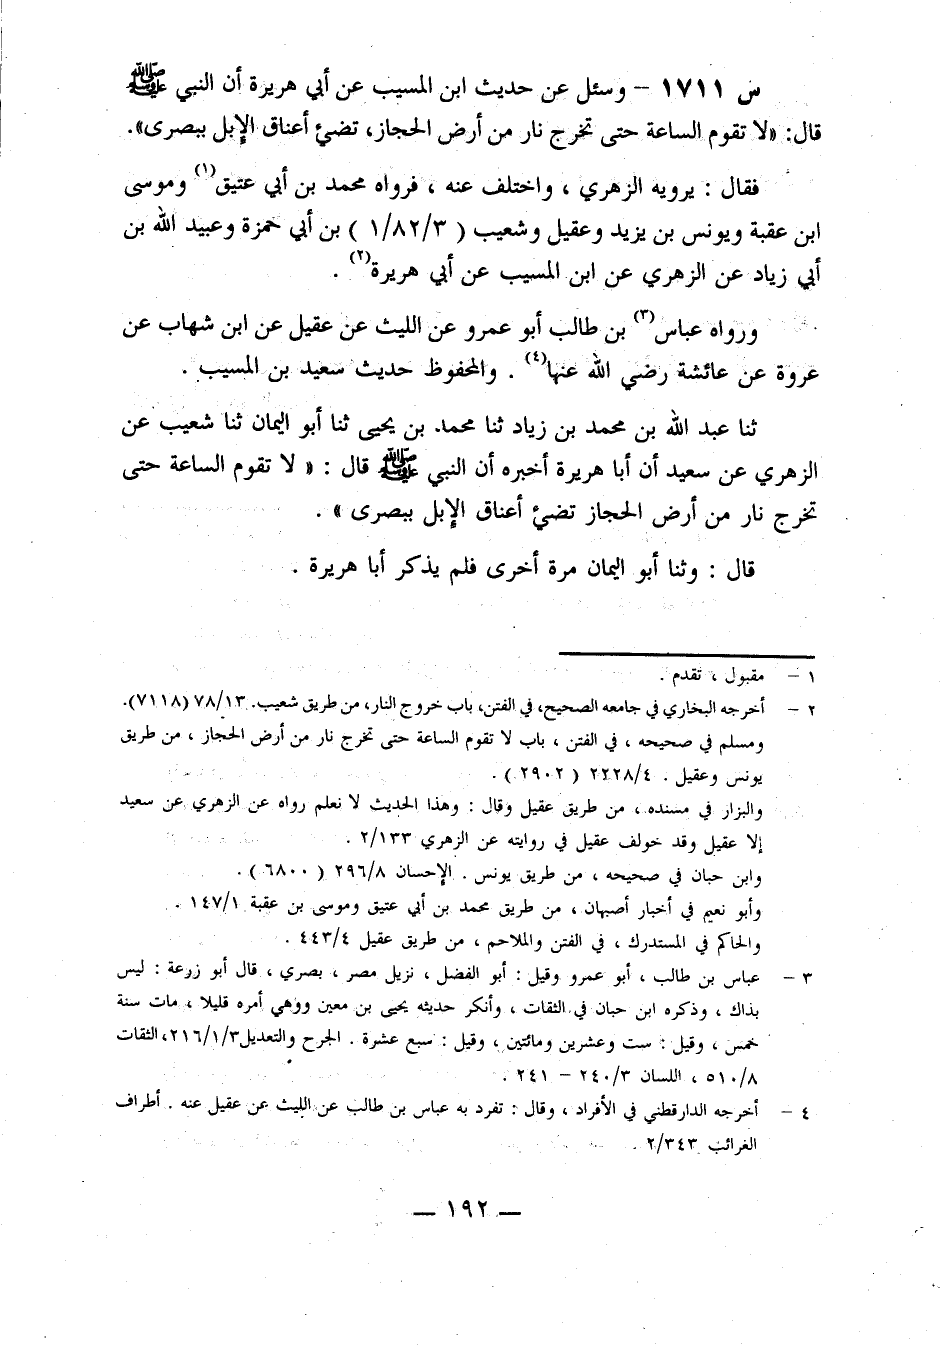 س ١٧١١ – وسئل عن حديث ابن المسيب عن أبي هريرة أن النبي ﷺ
قال: «لا تقوم الساعة حتى تخرج نار من أرض الحجاز، تضئ أعناق الإبل ببصرى».
فقال : يرويه الزهري ، واختلف عنه ، فرواه محمد بن أبي عتيق(١) وموسى
ابن عقبة ويونس بن يزيد وعقيل وشعيب ( ١/٨٢/٣ ) بن أبي حمزة وعبيد الله بن
أبي زياد عن الزهري عن ابن المسيب عن أبي هريرة(٢) .
ورواه عباس(٣) بن طالب أبو عمرو عن الليث عن عقيل عن ابن شهاب عن
عروة عن عائشة رضي الله عنها(٤) . والمحفوظ حديث سعيد بن المسيب .
ثنا عبد الله بن محمد بن زياد ثنا محمد بن يحيى ثنا أبو اليمان ثنا شعيب عن
الزهري عن سعيد أن أبا هريرة أخبره أن النبي ﷺ قال : « لا تقوم الساعة حتى
تخرج نار من أرض الحجاز تضئ أعناق الإبل ببصرى » .
قال : وثنا أبو اليمان مرة أخرى فلم يذكر أبا هريرة .
١ – مقبول ، تقدم .
٢ – أخرجه البخاري في جامعه الصحيح، في الفتن، باب خروج النار، من طريق شعيب. ٧٨/١٣ (٧١١٨).
ومسلم في صحيحه ، في الفتن ، باب لا تقوم الساعة حتى تخرج نار من أرض الحجاز ، من طريق
يونس وعقيل . ٢٢٢٨/٤ ( ٢٩٠٢ ) .
والبزار في مسنده ، من طريق عقيل وقال : وهذا الحديث لا نعلم رواه عن الزهري عن سعيد
إلا عقيل وقد خولف عقيل في روايته عن الزهري ٢/١٣٣ .
وابن حبان في صحيحه ، من طريق يونس . الإحسان ٢٩٦/٨ ( ٦٨٠٠ ) .
وأبو نعيم في أخبار أصبهان ، من طريق محمد بن أبي عتيق وموسى بن عقبة ١٤٧/١ .
والحاكم في المستدرك ، في الفتن والملاحم ، من طريق عقيل ٤٤٣/٤ .
٣ – عباس بن طالب ، أبو عمرو وقيل : أبو الفضل ، نزيل مصر ، بصري ، قال أبو زرعة : ليس
بذاك ، وذكره ابن حبان في الثقات ، وأنكر حديثه يحيى بن معين ووهي أمره قليلا ، مات سنة
خمس ، وقيل : ست وعشرين ومائتين ، وقيل : سبع عشرة . الجرح والتعديل ٢١٦/١/٣، الثقات
٥١٠/٨ ، اللسان ٢٤٠/٣ – ٢٤١ .
٤ – أخرجه الدارقطني في الأفراد ، وقال : تفرد به عباس بن طالب عن الليث عن عقيل عنه . أطراف
الغرائب ٢/٣٤٣ .
— ١٩٢ —